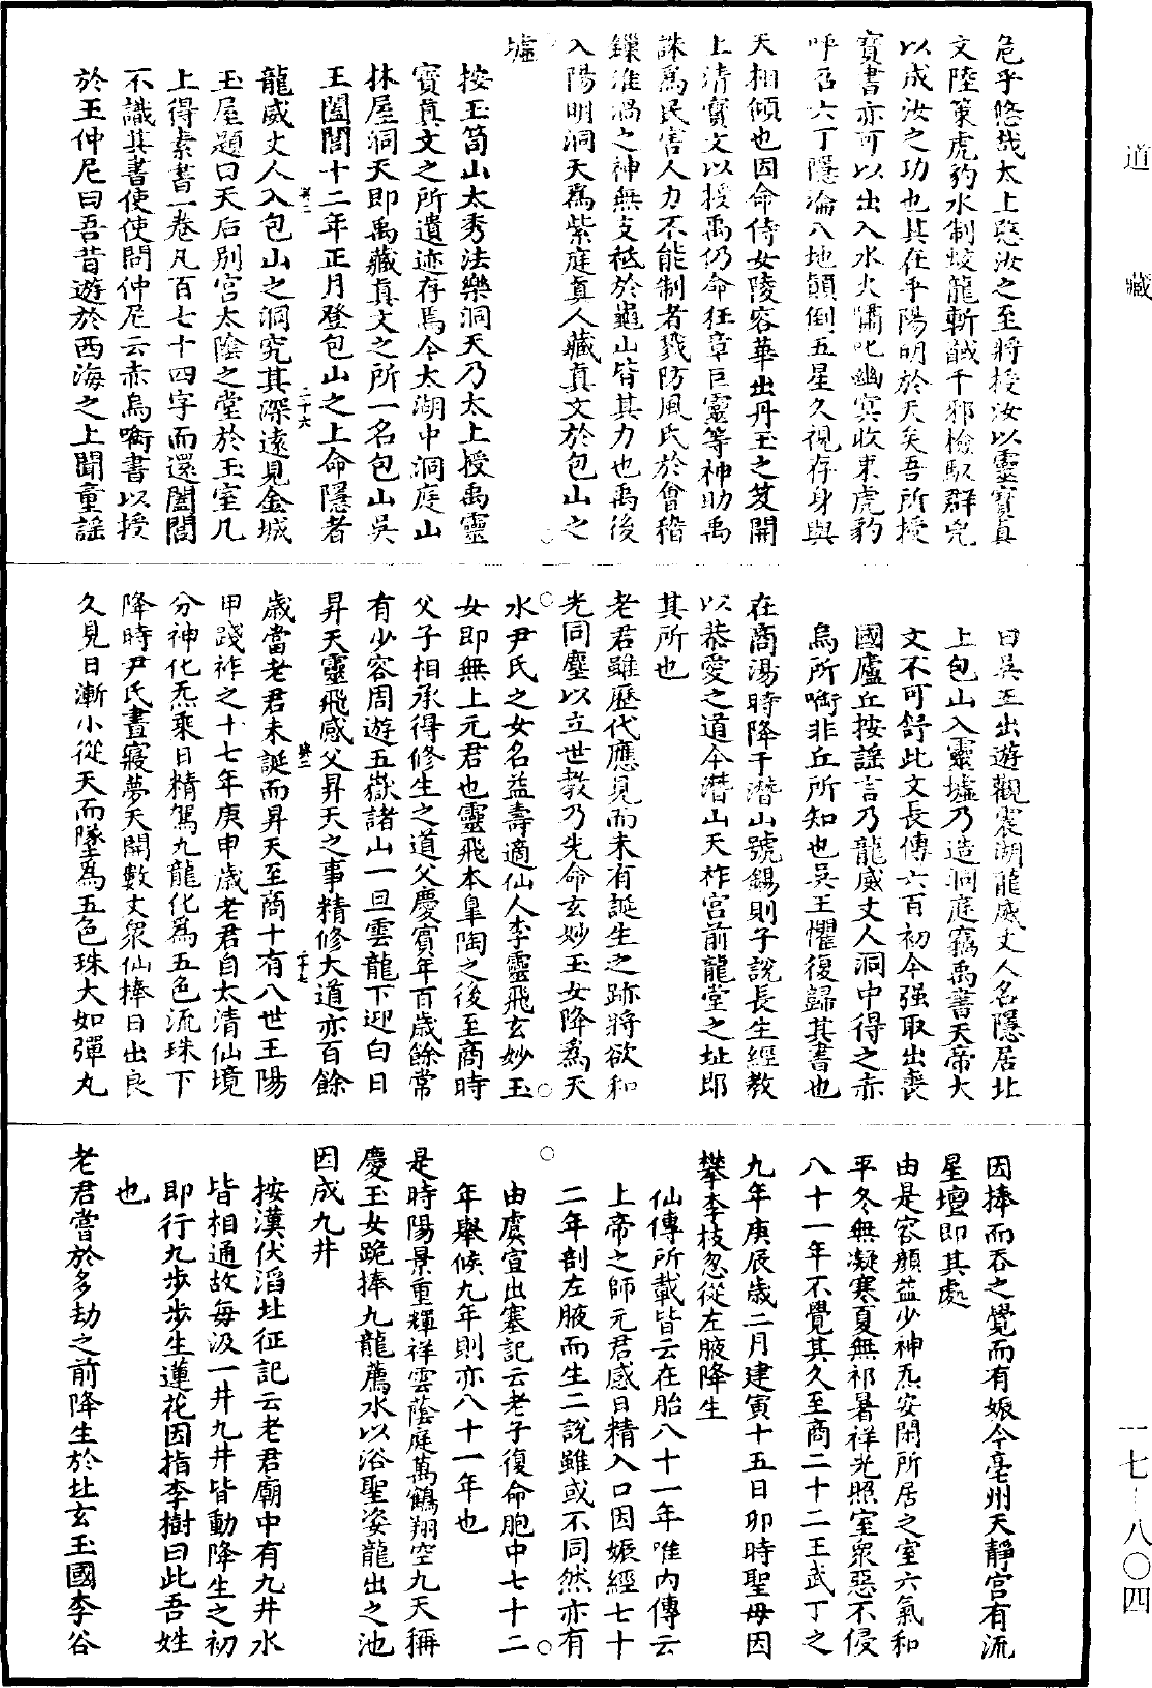 道藏
危乎悠哉太上愍汝之至將授汝以靈寶真
文陸策虎豹水制蛟龍斬馘千邪檢馭群兇
以成汝之功也其在乎陽明於天矣吾所授
寶書亦可以出入水火嘯叱幽冥收束虎豹
呼召六丁隱淪八地顛倒五星久視存身與
天相傾也因命侍女陵容華出丹玉之笈開
上清寶文以授禹仍命狂章巨靈等神助禹
誅為民害人力不能制者戮防風氏於會稽
鏁淮渦之神無支祗於龜山皆其力也禹後
入陽明洞天為紫庭真人藏真文於包山之
墟
按玉笥山太秀法樂洞天乃太上授禹靈
寶真文之所遺迹存焉今太湖中洞庭山
林屋洞天即禹藏真文之所一名包山吳
王闔閭十二年正月登包山之上命隱者
二十六
龍威丈人入包山之洞究其深遠見金城
玉屋題曰天后別宮太陰之堂於玉室几
上得素書一卷凡百七十四字而還闔閭
不識其書使使問仲尼云赤烏㗸書以授
於王仲尼曰吾昔遊於西海之上聞童謠
曰吳王出遊觀震湖龍威丈人名隱居北
上包山入靈墟乃造洞庭竊禹書天帝大
文不可舒此文長傳六百初今强取出喪
國廬丘按謠言乃龍威丈人洞中得之赤
烏所㗸非丘所知也吳王懼復歸其書也
在商湯時降于潛山號錫則子說長生經教
以恭愛之道今潛山天柞宮前龍堂之址即
其所也
老君雖歷代應見而未有誕生之跡將欲和
光同塵以立世教乃先命玄妙玉女降為天
水尹氏之女名益壽適仙人李靈飛玄妙玉
女即無上元君也靈飛本臯陶之後至商時
父子相承得修生之道父慶賓年百歲餘常
有少容周遊五嶽諸山一旦雲龍下迎白日
昇天靈飛感父昇天之事精修大道亦百餘
二十七
歲當老君未誕而昇天至商十有八世王陽
甲踐祚之十七年庚申歲老君自太清仙境
分神化炁乘日精駕九龍化為五色流珠下
降時尹氏晝寢夢天開數丈眾仙捧日出良
久見日漸小從天而墜為五色珠大如彈丸
因捧而吞之覺而有娠今亳州天靜宮有流
星壇即其處
由是容顏益少神炁安閑所居之室六氣和
平冬無凝寒夏無祁暑祥光照室眾惡不侵
八十一年不覺其久至商二十二王武丁之
九年庚辰歲二月建寅十五日卯時聖母因
攀李枝忽從左腋降生
仙傳所載皆云在胎八十一年唯內傳云
上帝之師元君感日精入口因娠經七十
二年剖左腋而生二說雖或不同然亦有
由虞宣出塞記云老子復命胞中七十二
年舉候九年則亦八十一年也
是時陽景重輝祥雲蔭庭萬鶴翔空九天稱
慶玉女跪捧九龍薦水以浴聖姿龍出之池
因成九井
按漢伏滔北征記云老君廟中有九井水
皆相通故每汲一井九井皆動降生之初
即行九步步生蓮花因指李樹曰此吾姓
也
老君嘗於多劫之前降生於北玄玉國李谷
一七－八〇四